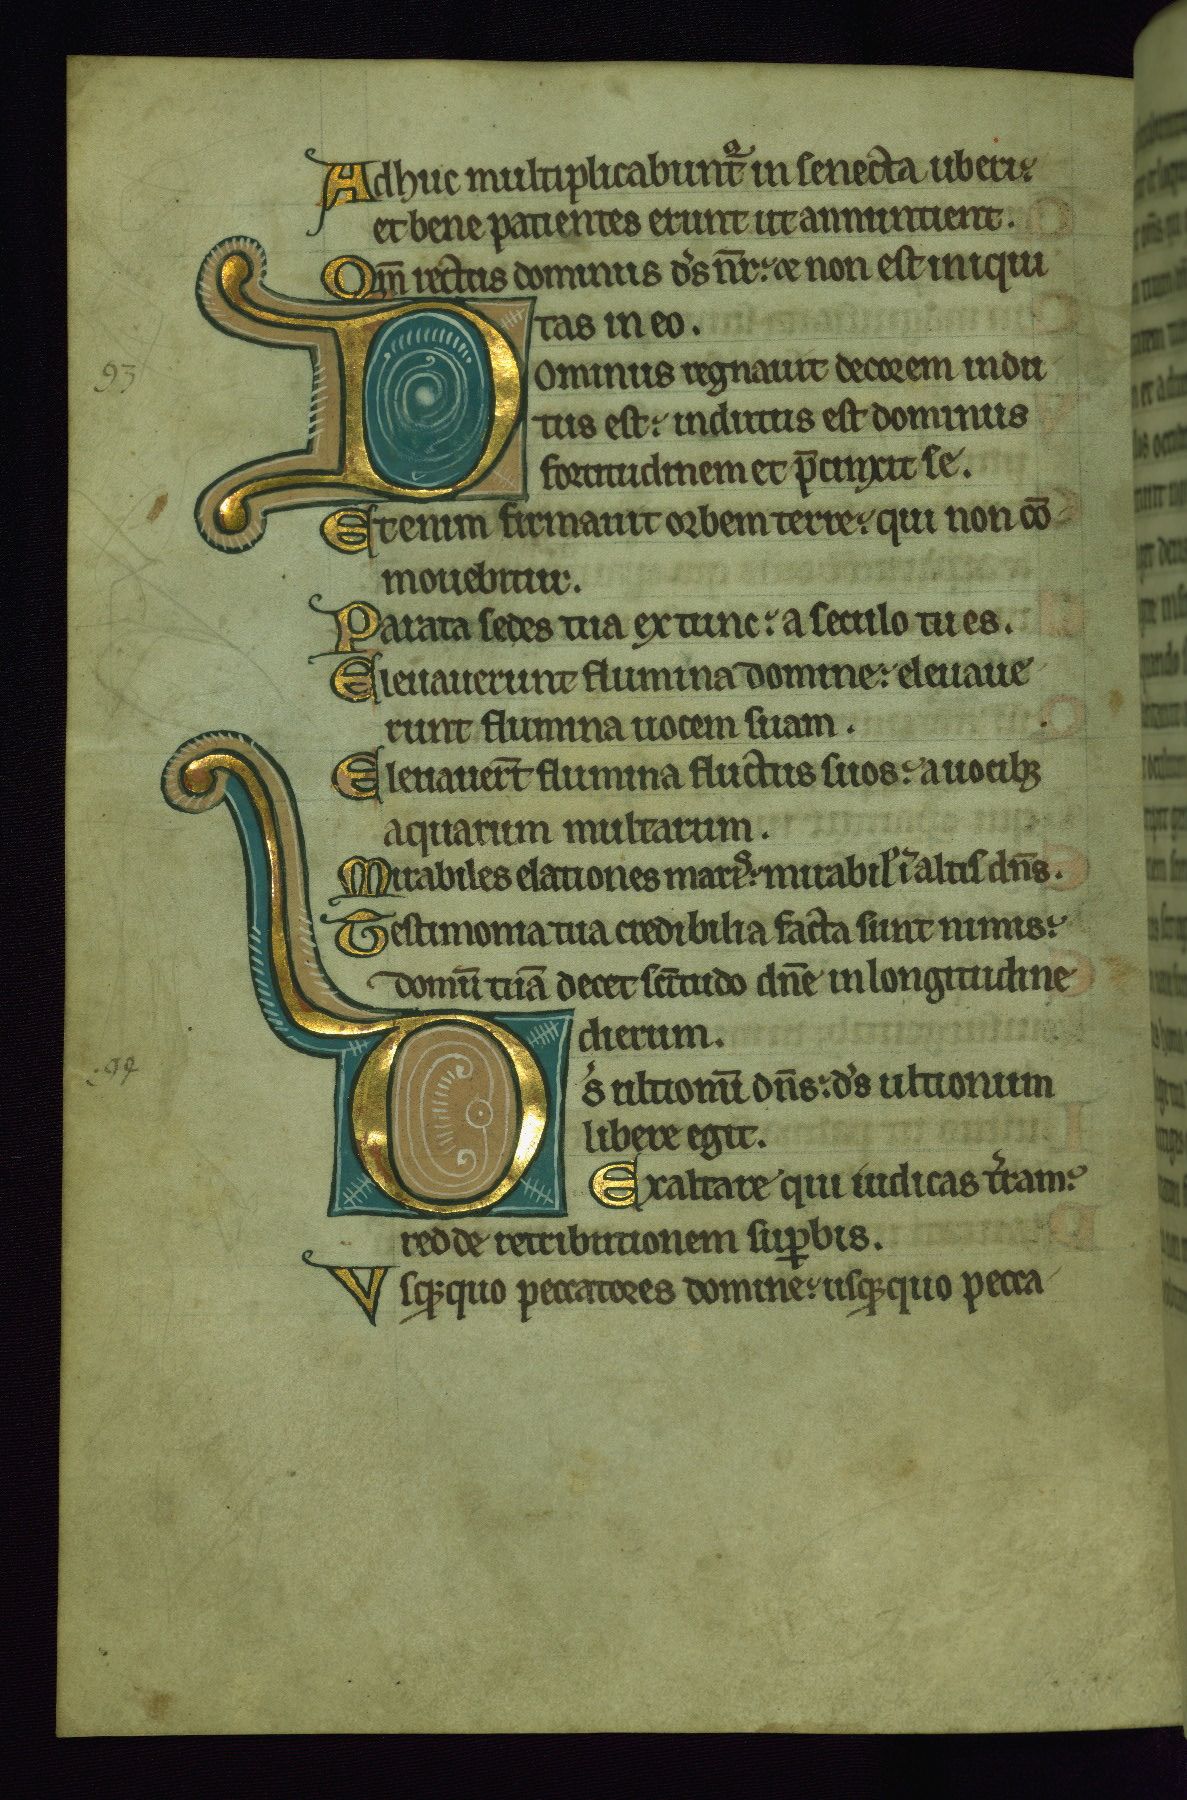 Adhuc multiplicabunt̄ᷓ in senecta uberi:
et bene patientes erunt ut annuntient.
Qm̄ rectus dominus d's nr̄: & non est iniqui
tas in eo.
93
Dominus regnauit decorem indu
tus est: indutus est dominus
fortitudinem et p̄cinxit se.
Etenim firmauit orbem terre: qui non cō
mouebitur.
Parata sedes tua ex tunc: a seculo tu es.
Eleuauerunt flumina domine: eleuaue
runt flumina uocem suam.
Eleuauer̄t flumina fluctus suos: a uocibꝫ
aquarum multarum.
Mirabiles elationes mar's: mirabil' ī altis dn̄s.
Testimonia tua credibilia facta sunt nimis:
domū tuā decet sc̄itudo dn̄e in longitudine
dierum.
D's ultionū dn̄s: d's ultionum
libere egit.
Exaltare qui iudicas t'ram:
redde retributionem suꝑbis.
Vsqꝫquo peccatores domine: usqꝫquo pecca